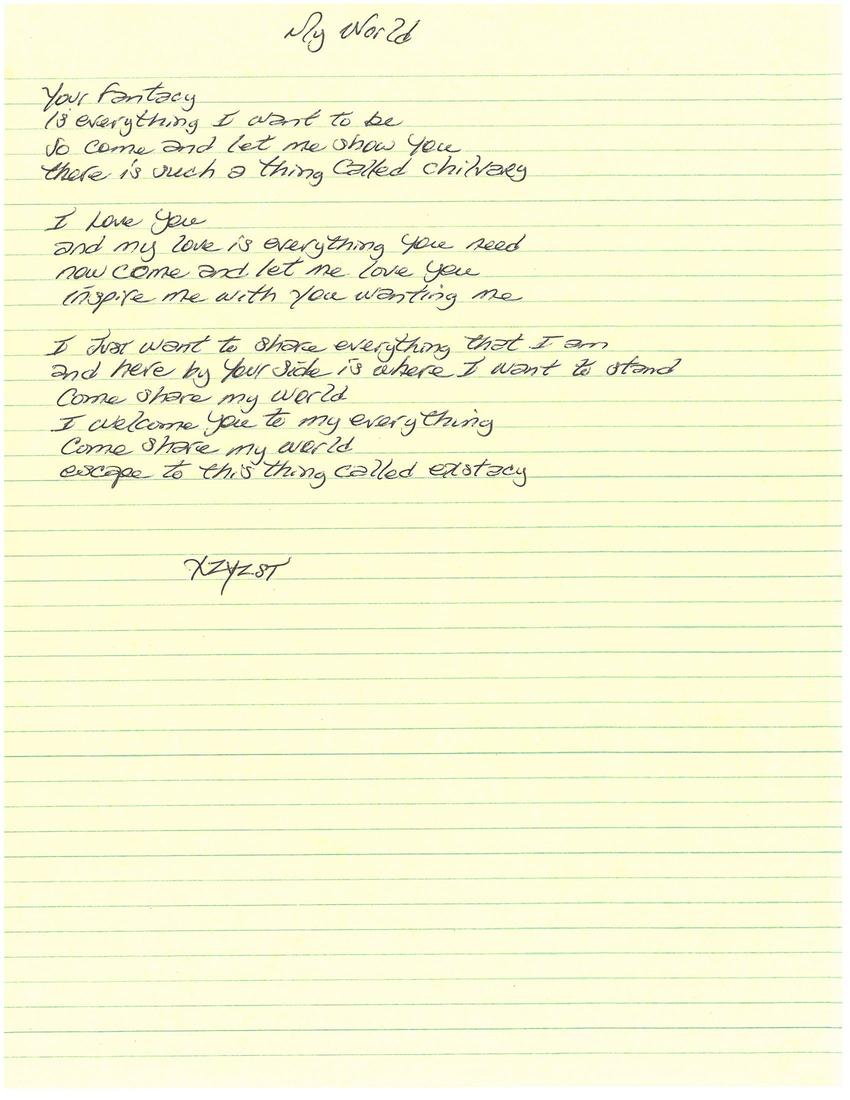 My World
Your fantacy
is everything I want to be
so come and let me show you
there is such a thing called chilvary
I love you
and my love is everything you need
now come and let me love you
inspire me with you wanting me
I just want to share everything that I am
and here by your side is where I want to stand
Come share my world
I welcome you to my everything
Come share my world
escape to this thing called exstacy
XZYZST